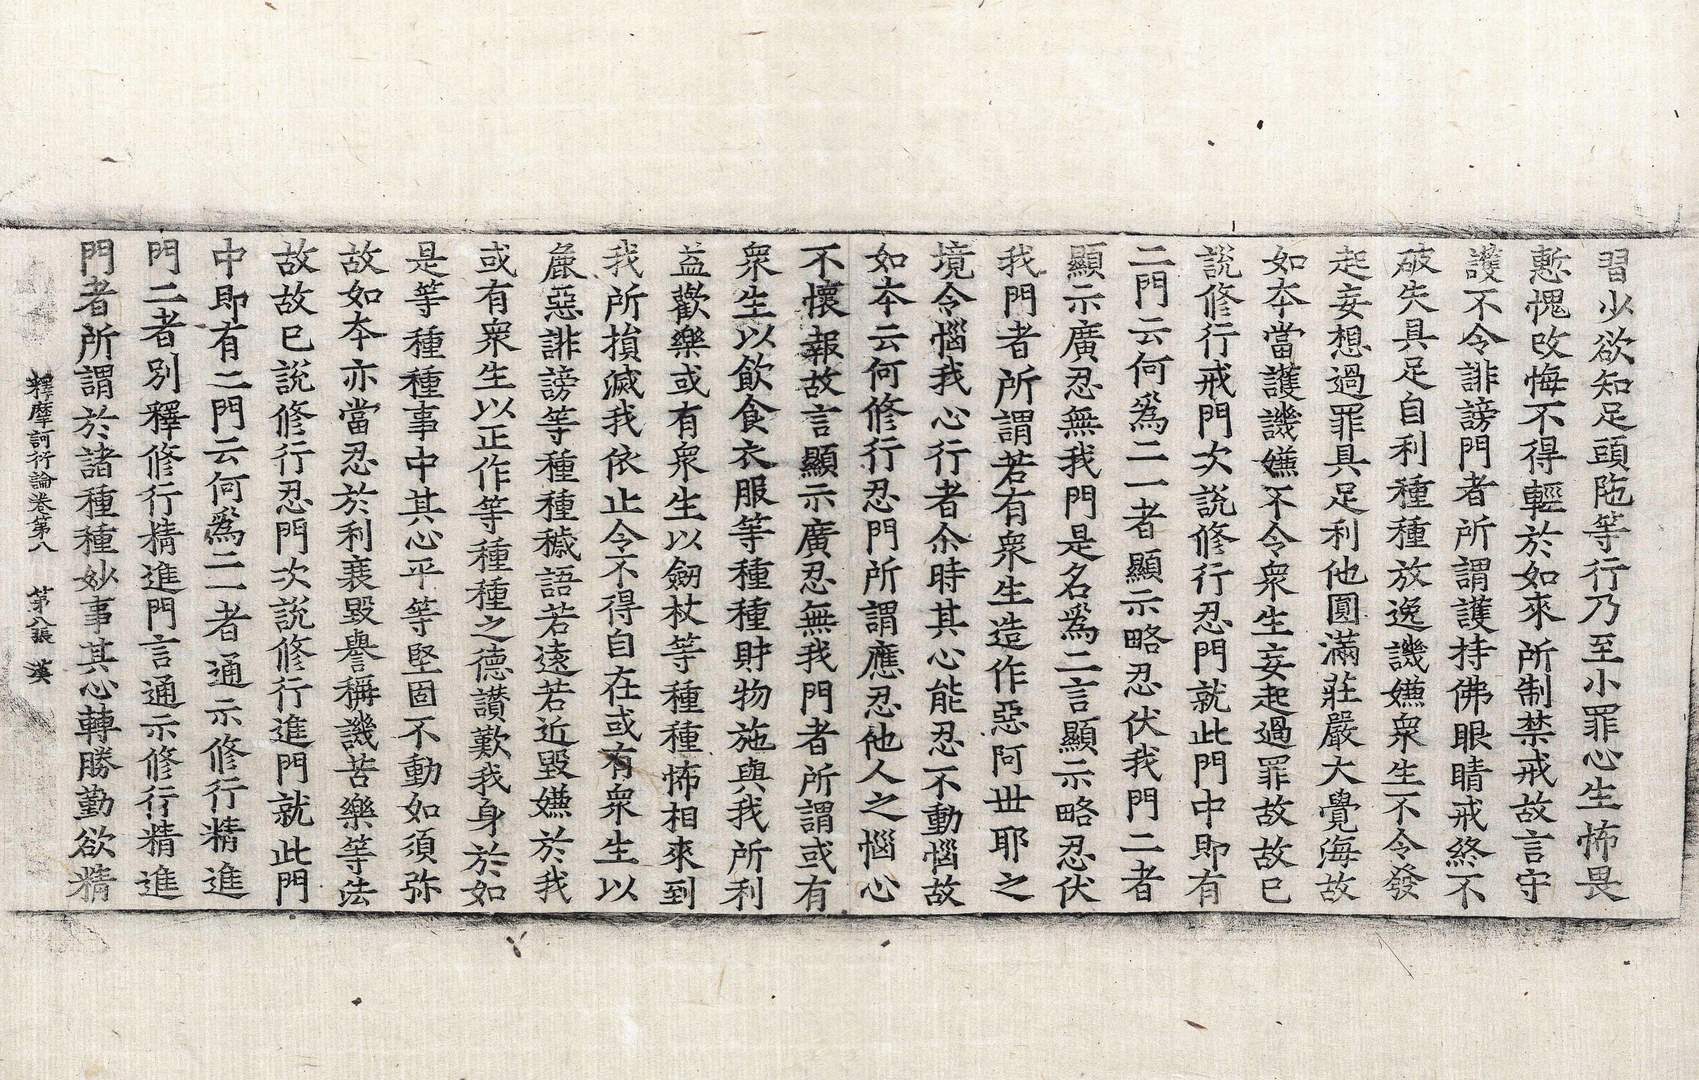 習少欲知足頭陁等行乃至小罪心生怖畏
慙愧改悔不得輕於如來所制禁戒故言守
護不令誹謗門者所謂護持佛眼睛戒終不
破失具足自利種種放逸譏嫌衆生不令發
起妄想過罪具足利他圓滿莊嚴大覺海故
如本當護譏嫌不令衆生妄起過罪故故已
說修行戒門次說修行忍門就此門中即有
二門云何爲二一者顯示略忍伏我門二者
顯示廣忍無我門是名爲二言顯示略忍伏
我門者所謂若有衆生造作惡阿世耶之
境令惱我心行者尒時其心能忍不動惱故
如本云何修行忍門所謂應忍他人之惱心
不懷報故言顯示廣忍無我門者所謂或有
衆生以飮食衣服等種種財物施與我所利
益歡樂或有衆生以劒杖等種種怖相來到
我所損滅我依止令不得自在或有衆生以
麁惡誹謗等種種穢語若遠若近毀嫌於我
或有衆生以正作等種種之德讃歎我身於如
是等種種事中其心平等堅固不動如須弥
故如本亦當忍於利衰毀譽稱譏苦樂等法
故故已說修行忍門次說修行進門就此門
中即有二門云何爲二一者通示修行精進
門二者別釋修行精進門言通示修行精進
門者所謂於諸種種妙事其心轉勝勤欲精
釋摩訶衍論卷第八 第八張 漢